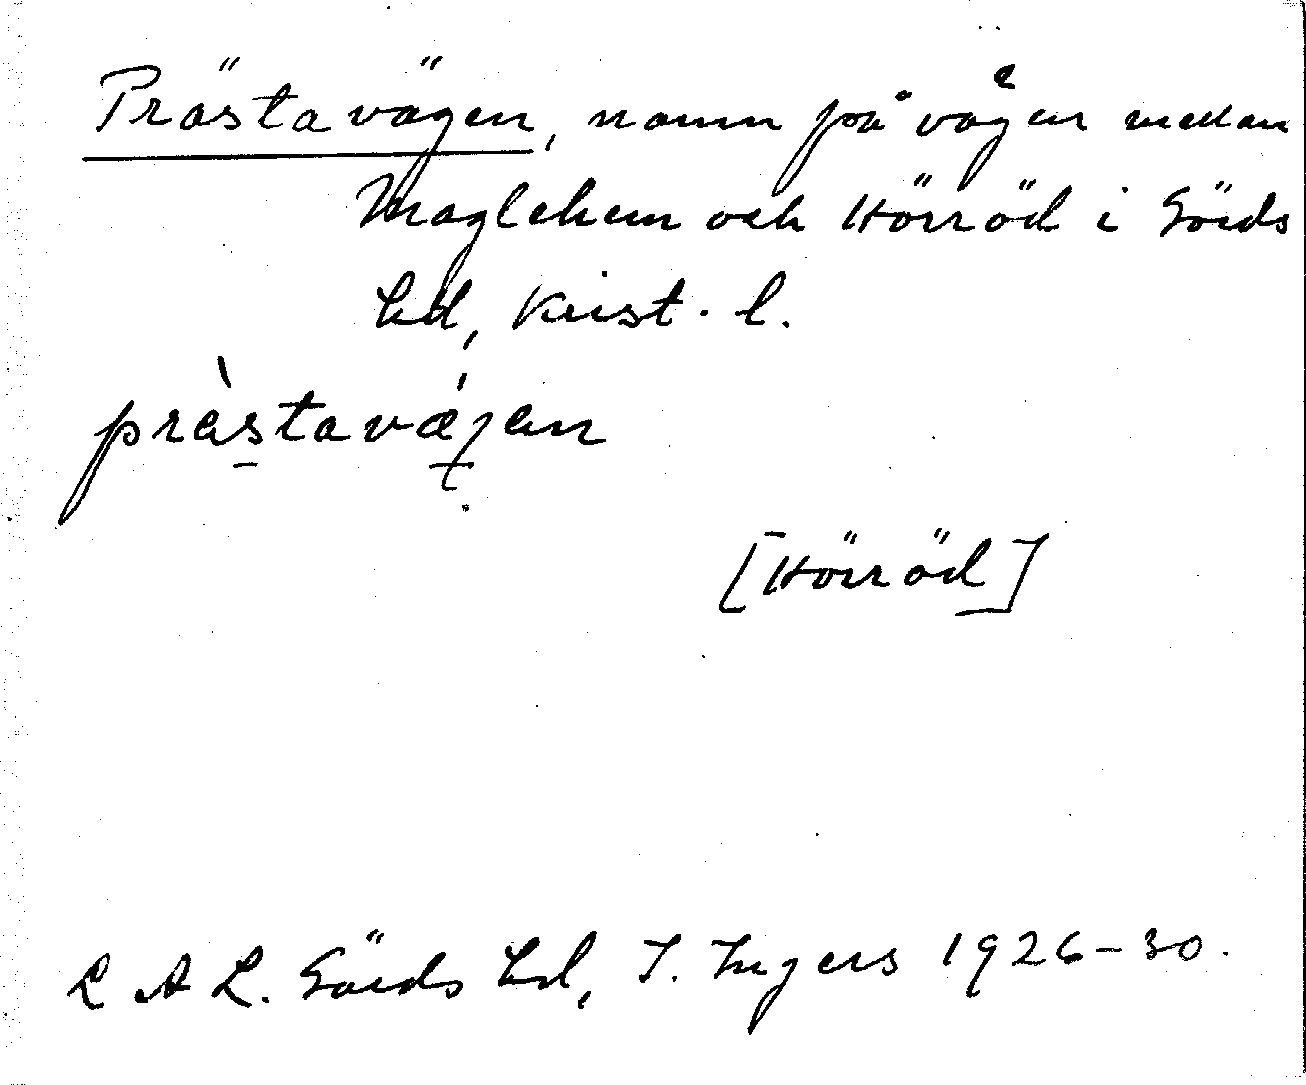 Prästavägen, namn på vägen mellan
Maglehem och Hörröd i Gärds
hd, Krist. l.
prästavægen
[Hörröd]
L A L. Gärds hd, I. Ingers 1926-30.